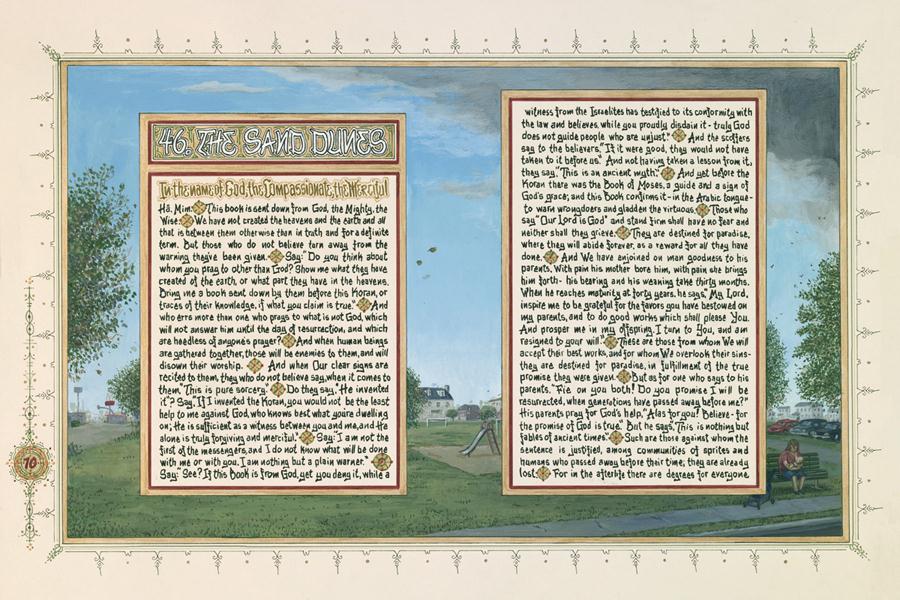 46. THE SAND DUNES
In the name of God, the Compassionate, the Merciful
Hā. Mīm. This book is sent down from God, the Mighty, the
Wise. We have not created the heavens and the earth and all
that is between them otherwise than in truth and for a definite
term. But those who do not believe turn away from the
warning they've been given. Say: "Do you think about
whom you pray to other than God? Show me what they have
created of the earth, or what part they have in the heavens.
Bring me a book sent down by them before this Koran, or
traces of their knowledge, if what you claim is true." And
who errs more than one who prays to what is not God, which
will not answer him until the day of resurrection, and which
are heedless of anyone's prayer? And when human beings
are gathered together, those will be enemies to them, and will
disown their worship. And when Our clear signs are
recited to them, they who do not believe say, when it comes to
them, "This is pure sorcery." Do they say, "He invented
it"? Say: If I invented the Koran, you would not be the least
help to me against God, who knows best what you're dwelling
on; He is sufficient as a witness between you and me, and He
alone is truly forgiving and merciful." Say: "I am not the
first of the messengers, and I do not know what will be done
with me or with you. I am nothing but a plain warner."
Say: See? If this Book is from God, yet you deny it, while a
witness from the Israelites has testified to its conformity with
the law and believes, while you proudly disdain it - truly God
does not guide people who are unjust." And the scoffers
say to the believers, "If it were good, they would not have
taken to it before us." And not having taken a lesson from it,
they say, "This is an ancient myth." And yet before the
Koran there was the Book of Moses, a guide and a sign of
God's grace; and this Book confirms it - in the Arabic tongue -
to warn wrongdoers and gladden the virtuous. Those who
say "Our Lord is God" and stand firm shall have no fear and
neither shall they grieve. They are destined for paradise,
where they will abide forever, as a reward for all they have
done. And We have enjoined on man goodness to his
parents. With pain his mother bore him, with pain she brings
him forth - his bearing and his weaning take thirty months.
When he reaches maturity at forty years, he says, "My Lord,
inspire me to be grateful for the favors you have bestowed on
my parents, and to do good works which shall please You.
And prosper me in my offspring. I turn to You, and am
resigned to your will." These are those from whom We will
accept their best works, and for whom We overlook their sins -
they are destined for paradise, in fulfillment of the true
promise they were given. But as for one who says to his
parents, "Fie on you both! Do you promise I will be
resurrected, when generations have passed away before me?"
His parents pray for God's help, "Alas for you! Believe - for
the promise of God is true." But he says, "This is nothing but
fables of ancient times." Such are those against whom the
sentence is justified, among communities of sprites and
humans who passed away before their time; they are already
lost. For in the afterlife there are degrees for everyone
10